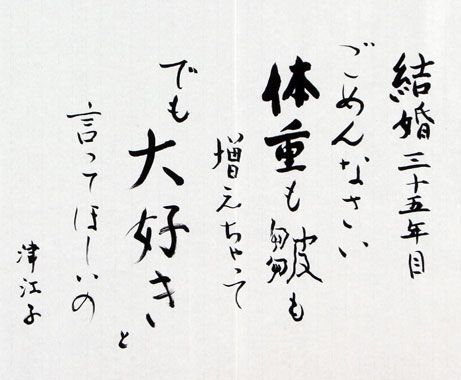 結婚三十五年目
ごめんなさい
体重も皺も
増えちゃって
でも大好きと
言ってほしいの
津江子